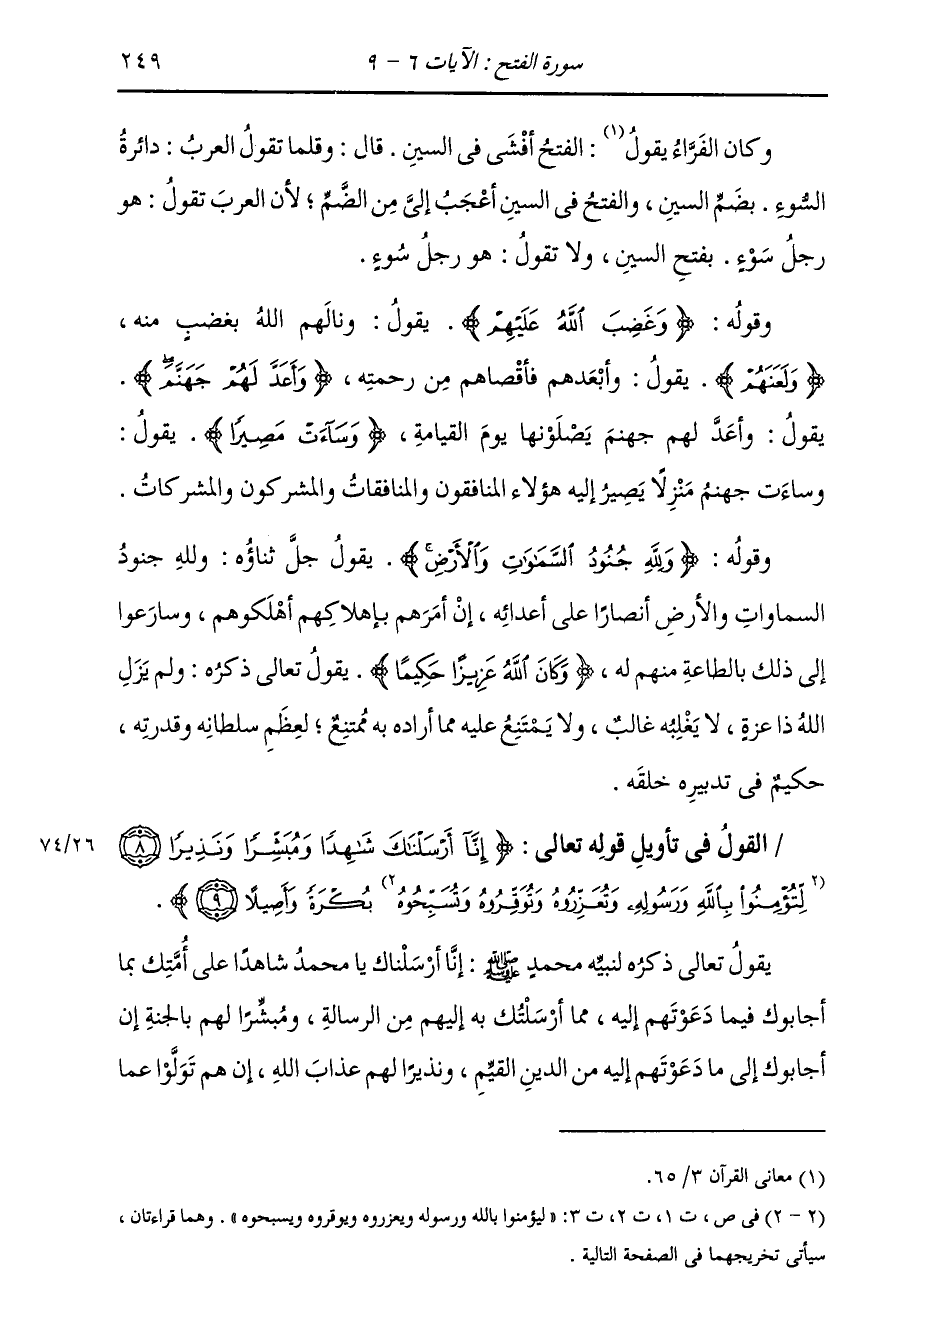 سورة الفتح : الآيات ٦ - ٩ ٢٤٩
وكان الفَرَّاءُ يقولُ(١) : الفتحُ أفْشَى فى السينِ . قال : وقلما تقولُ العربُ : دائرةُ
السُّوءِ . بضَمِّ السينِ ، والفتحُ فى السينِ أعْجَبُ إلىَّ مِن الضَّمِّ ؛ لأن العربَ تقولُ : هو
رجلُ سَوْءٍ . بفتحِ السينِ ، ولا تقولُ : هو رجلُ سُوءٍ .
وقولُه : ﴿ وَغَضِبَ ٱللَّهُ عَلَيْهِمْ ﴾ . يقولُ : ونالَهم اللهُ بغضبٍ منه ،
﴿ وَلَعَنَهُمْ ﴾ . يقولُ : وأبْعَدهم فأقْصاهم مِن رحمتِه ، ﴿ وَأَعَدَّ لَهُمْ جَهَنَّمَۖ ﴾ .
يقولُ : وأعَدَّ لهم جهنمَ يَصْلَوْنها يومَ القيامةِ ، ﴿ وَسَآءَتْ مَصِيرًا ﴾ . يقولُ :
وساءَت جهنمُ مَنْزِلًا يَصِيرُ إليه هؤلاء المنافقون والمنافقاتُ والمشركون والمشركاتُ .
وقولُه : ﴿ وَلِلَّهِ جُنُودُ ٱلسَّمَٰوَٰتِ وَٱلْأَرْضِۚ ﴾ . يقولُ جلَّ ثناؤُه : وللهِ جنودُ
السماواتِ والأرضِ أنصارًا على أعدائِه ، إنْ أمَرَهم بإهلاكِهم أهْلَكوهم ، وسارَعوا
إلى ذلك بالطاعةِ منهم له ، ﴿ وَكَانَ ٱللَّهُ عَزِيزًا حَكِيمًا ﴾ . يقولُ تعالى ذكرُه : ولم يَزَلِ
اللهُ ذا عزةٍ ، لا يَغْلِبُه غالبٌ ، ولا يَمْتَنِعُ عليه مما أراده به مُمتنِعٌ ؛ لعِظَمِ سلطانِه وقدرتِه ،
حكيمٌ فى تدبيرِه خلقَه .
/ القولُ فى تأويلِ قولِه تعالى : ﴿ إِنَّآ أَرْسَلْنَٰكَ شَٰهِدًا وَمُبَشِّرًا وَنَذِيرًا ٨ ٧٤/٢٦
(٢) لِّتُؤْمِنُوا۟ بِٱللَّهِ وَرَسُولِهِۦ وَتُعَزِّرُوهُ وَتُوَقِّرُوهُ وَتُسَبِّحُوهُ(٢) بُكْرَةً وَأَصِيلًا ٩ ﴾ .
يقولُ تعالى ذكرُه لنبيِّه محمدٍ ﷺ : إنَّا أرْسَلْناك يا محمدُ شاهدًا على أُمَّتِك بما
أجابوك فيما دَعَوْتَهم إليه ، مما أرْسَلْتُك به إليهم مِن الرسالةِ ، ومُبشِّرًا لهم بالجنةِ إن
أجابوك إلى ما دَعَوْتَهم إليه من الدينِ القيِّمِ ، ونذيرًا لهم عذابَ اللهِ ، إن هم تَوَلَّوْا عما
(١) معانى القرآن ٣/ ٦٥.
(٢ - ٢) فى ص ، ت ١، ت ٢، ت ٣: « ليؤمنوا بالله ورسوله ويعزروه ويوقروه ويسبحوه » . وهما قراءتان ،
سيأتى تخريجهما فى الصفحة التالية .